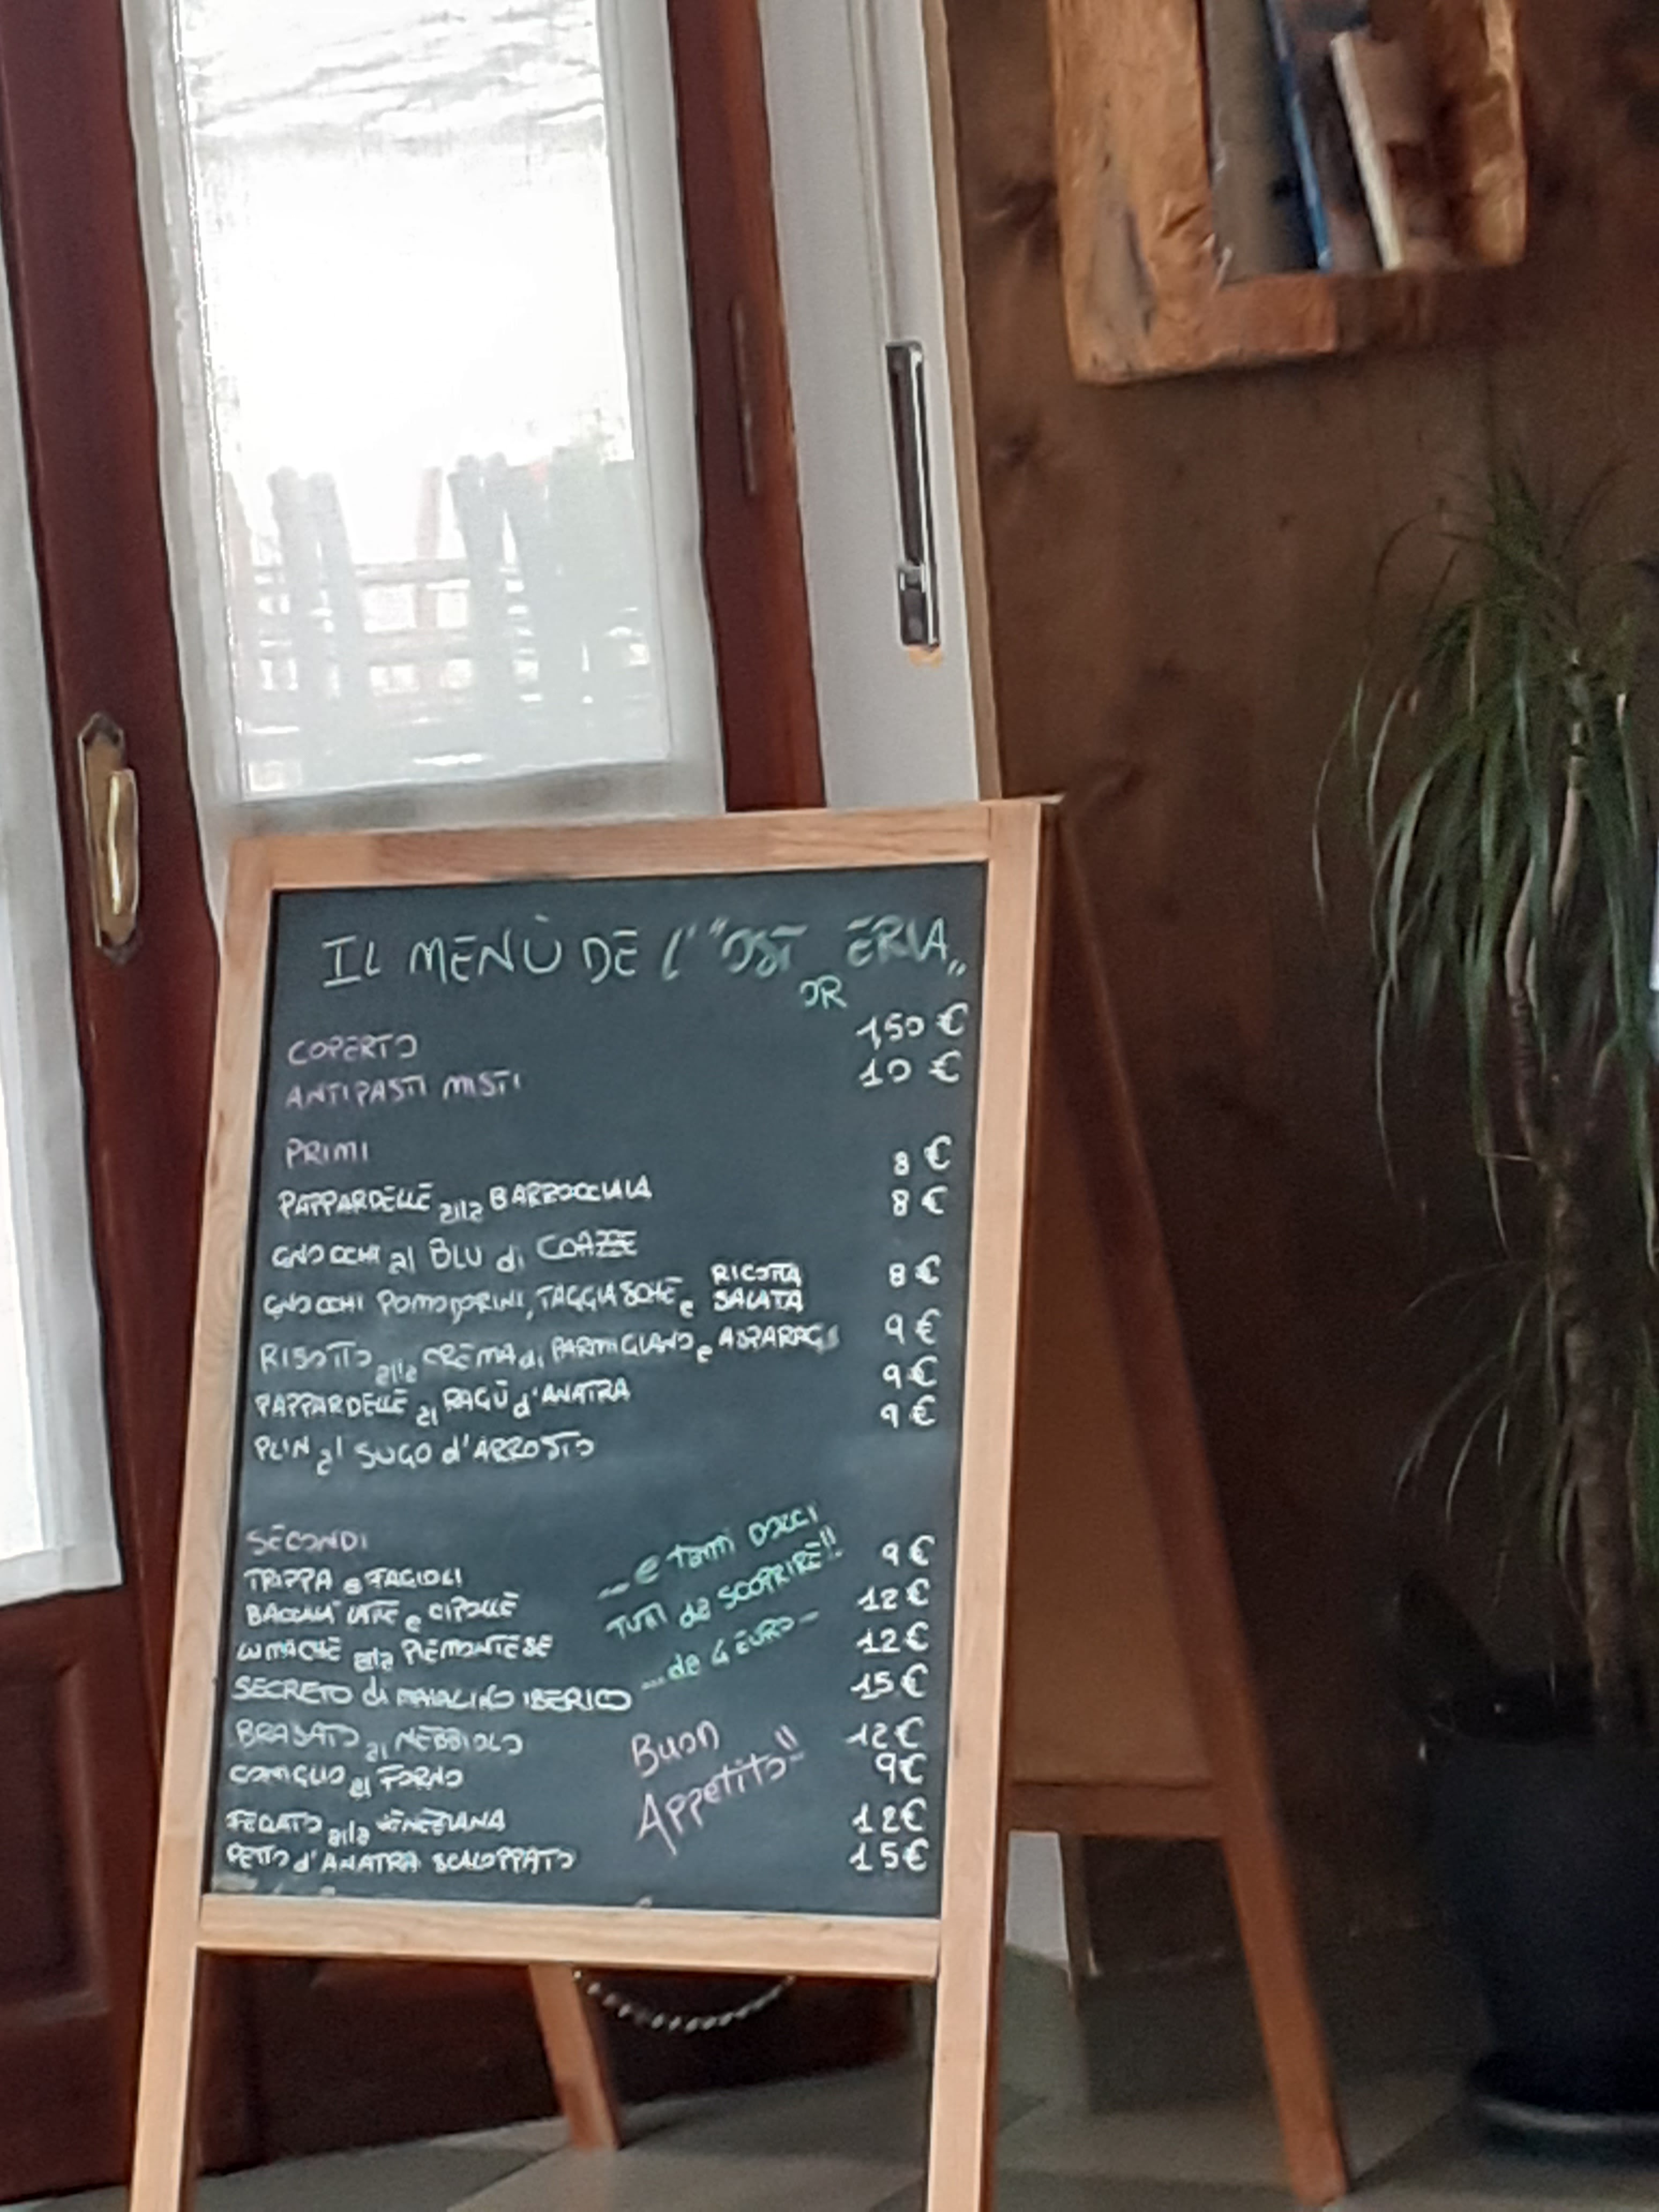 IL MENÙ DE L'"OST ERIA"
OR
COPERTO 1,50 €
ANTIPASTI MISTI 10 €
PRIMI
PAPPARDELLE alla BARROCCIAIA 8 €
GNOCCHI al BLU di COAZZE 8 €
GNOCCHI POMODORINI, TAGGIASCHE e RICOTTA SALATA 8 €
RISOTTO alla CREMA di PARMIGIANO e ASPARAGI 9 €
PAPPARDELLE al RAGÙ d'ANATRA 9 €
PLIN al SUGO d'ARROSTO 9 €
SECONDI
TRIPPA e FAGIOLI 9 €
BACCALA' LATTE e CIPOLLE 12 €
LUMACHE alla PIEMONTESE 12 €
SECRETO di MAIALINO IBERICO 15 €
BRASATO al NEBBIOLO 12 €
CONIGLIO al FORNO 9 €
FEGATO alla VENEZIANA 12 €
PETTO d'ANATRA SCALOPPATO 15 €
... e tanti DOLCI
TUTTI da SCOPRIRE!!
... da 4 EURO -
Buon
Appetito!!